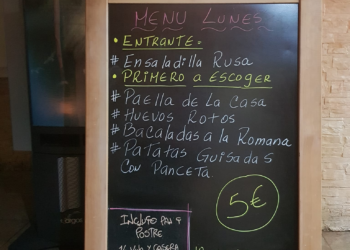 MENU LUNES
• ENTRANTE =
# ENSALADILLA RUSA
• PRIMERO A ESCOGER
# PAELLA DE LA CASA
# HUEVOS ROTOS
# BACALADAS A LA ROMANA
# PATATAS GUISADAS
CON PANCETA
5€
INCLUIDO PAN Y
POSTRE
Y CASERA